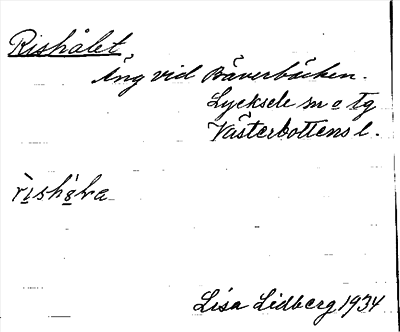 Rishålet.
Äng vid Bäverbäcken.
Lycksele sn o tg
Västerbottens l.
Lisa Lidberg 1934